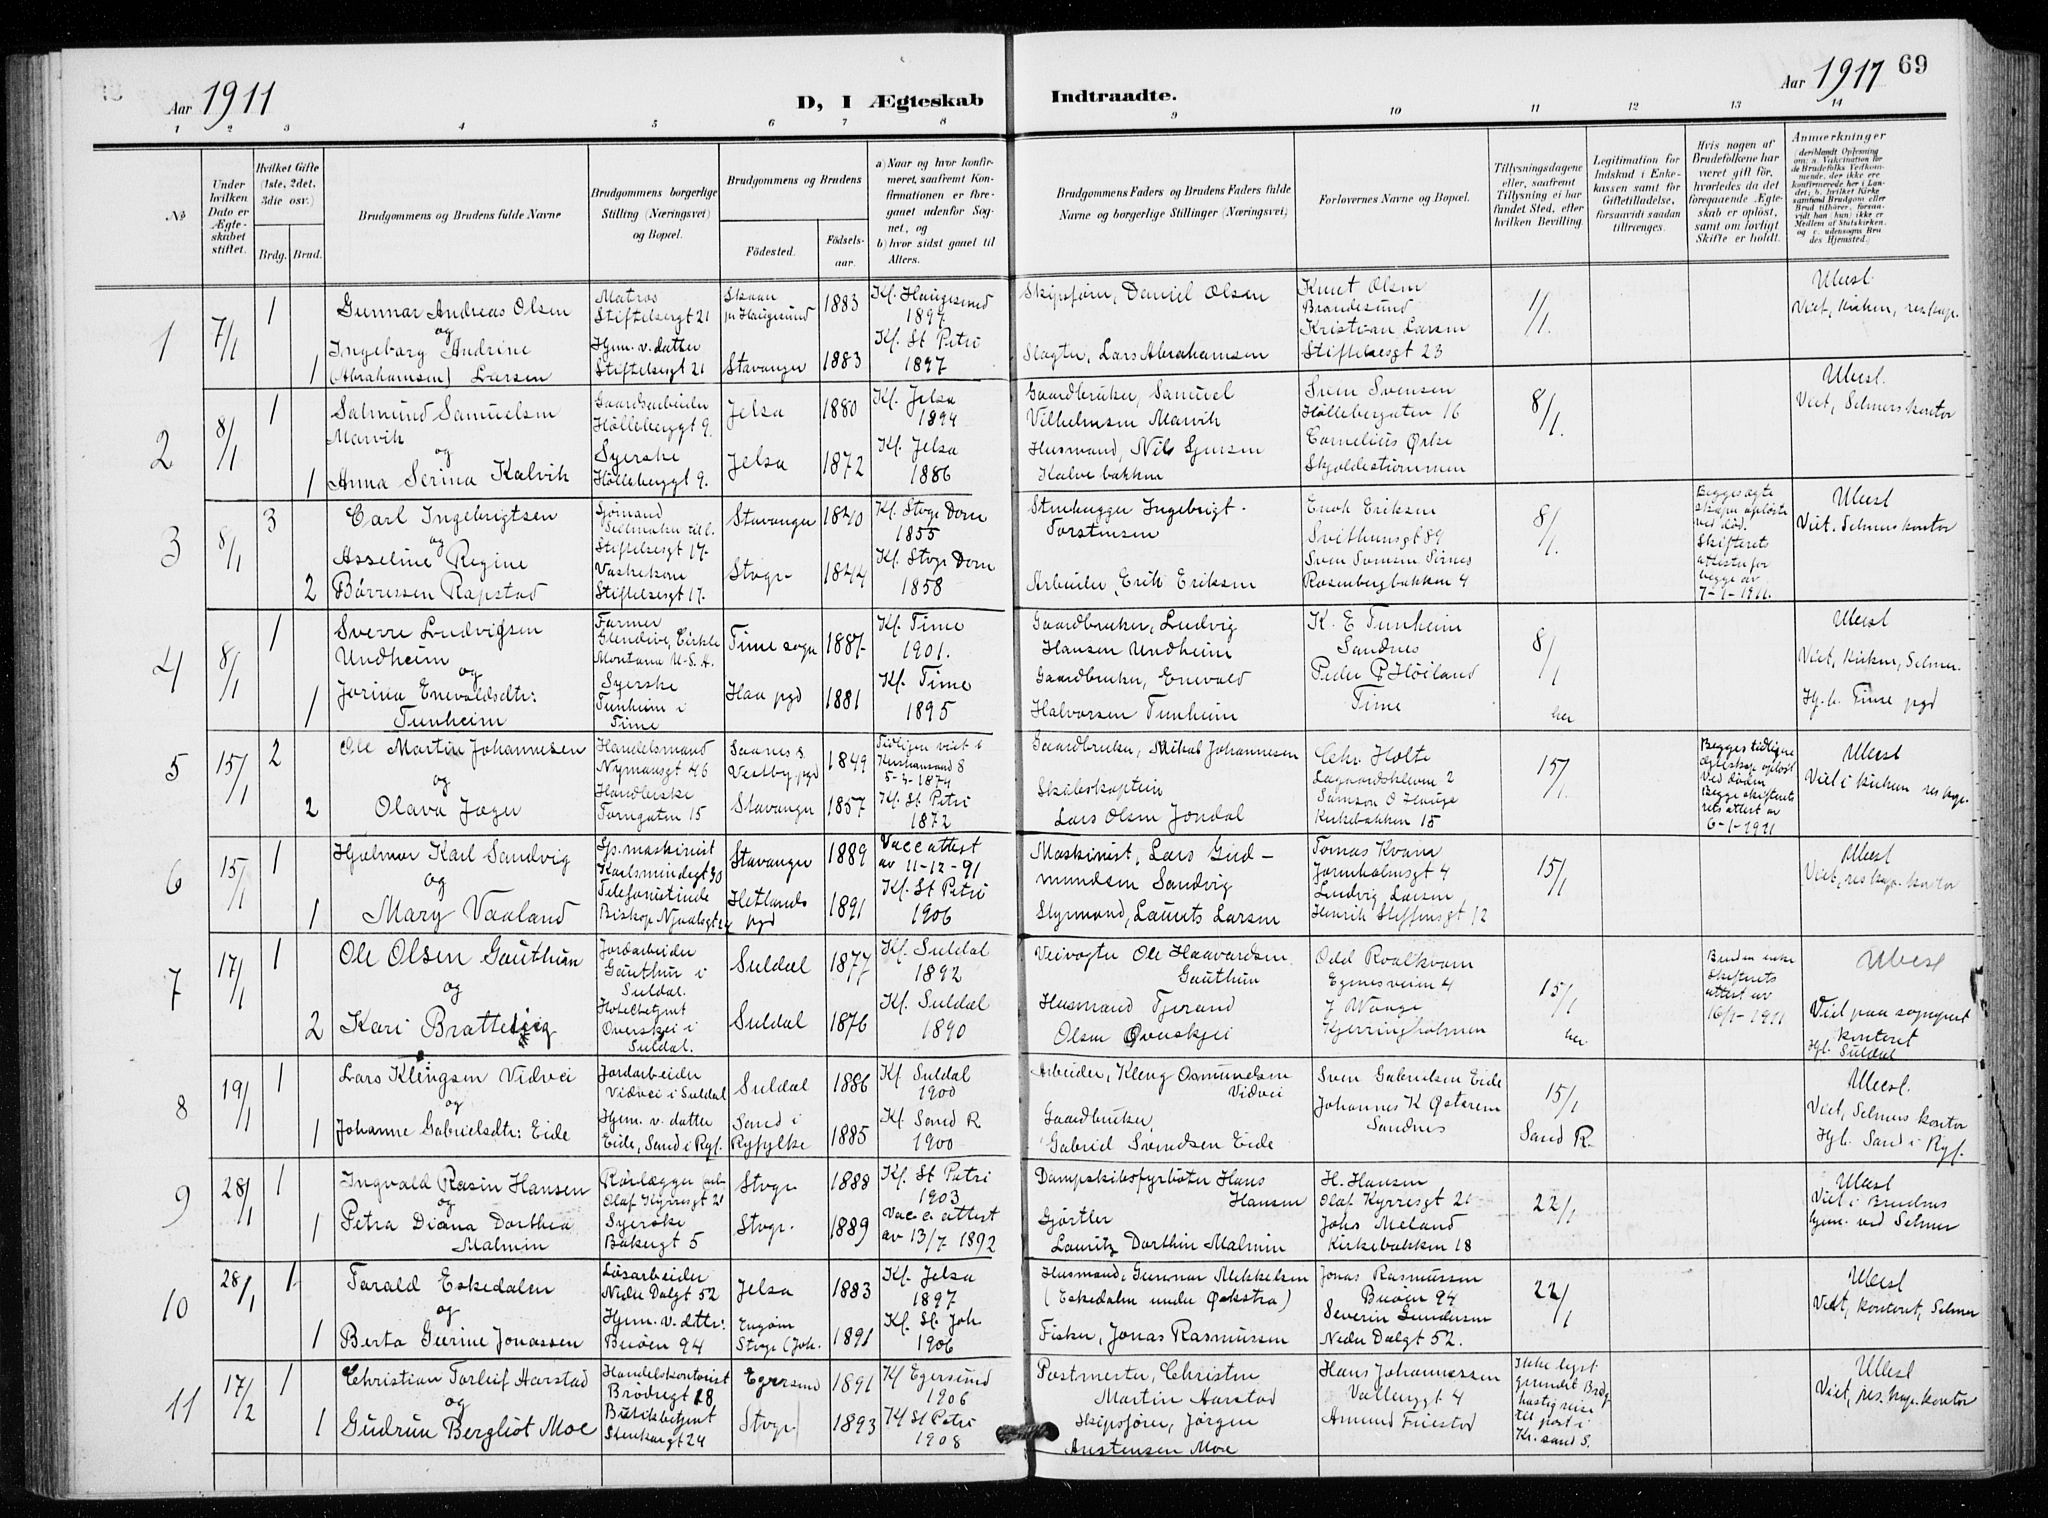 Aar 1911
D, I Ægteskab
Indtraadte.
Aar 1917
69
1 2 3 4 5 6 7 8 9 10 11 12 13 14
№
Under hvilken Dato er Ægteskabet stiftet.
Hvilket Gifte (1ste, 2det, 3die osv.)
Brdg. Brud.
Brudgommens og Brudens fulde Navne
Brudgommens borgerlige Stilling (Næringsvei) og Bopæl.
Brudgommens og Brudens
Fødested.
Fødselsaar.
a) Naar og hvor konfirmeret, saafremt Konfirmationen er foregaaet udenfor Sognet, og
b) hvor sidst gaaet til Alters.
Brudgommens Faders og Brudens Faders fulde Navne og borgerlige Stillinger (Næringsvei)
Forlovernes Navne og Bopæl.
Tillysningsdagene eller, saafremt Tillysning ei har fundet Sted, efter hvilken Bevilling.
Legitimation for Indskud i Enkekassen samt for Giftetilladelse, forsaavidt saadan tiltrænges.
Hvis nogen af Brudefolkene har været gift før, hvorledes da det foregaaende Ægteskab er opløst, samt om lovligt Skifte er holdt.
Anmærkninger
1
7/1
1
Gunnar Andreas Olsen
og
1 Ingeborg Andrine
(Abrahamsen) Larsen
Matros
Stiftelsesgt 21
Hjem. v. datter
Stiftelsesgt 21
Skaan
pr Haugesund
1883
Stavanger
1883
Kf. Haugesund
1897
Kf. St Petri
1897
Skipsfører, Daniel Olsen
Slagter, Lars Abrahamsen
Knut Olsen
Brandesund
Kristian Larsen
Stiftelsesgt 23
1/1.
Ubesl.
Viet, kirken, res. kap.
2
8/1
1
Salmund Samuelsen
Marvik
og
1 Anna Serina Kalvik
Gaardsarbeider
Hølleberggt 9.
Syerske
Hølleberggt 9.
Jelsa
1880
Jelsa
1872
Kf. Jelsa
1894
Kf. Jelsa
1886
Gaardbruker, Samuel
Vilhelmsen Marvik
Husmand, Nils
Kalvebakken
Sven Svensen
Høllebergaten 16
Cornelius Ørke
Skjoldestrømmen
8/1.
Ubesl.
Viet, Selmers kontor
3
8/1
3
Carl Ingebrigtsen
og
Asseline Regine
2 Børressen Rapstad
Sjømand
Seilmaker till.
Stiftelsesgt 17.
Vaskekone
Stiftelsesgt 17.
Stavanger
1840
Stvgr
1844
Kf. Stvgr Dom
1855
Kf. Stvgr Dom
1858
Stenhugger Ingebrigt
Torstensen
Arbeider, Erik Eriksen
Enok Eriksen
Svithunsgt 89
Rosenbergbakken 4
8/1.
Begges egte
skaper opløste
ved død.
Skifterets
attester for
begge av
7-1-1911.
Ubesl
Viet. Selmers kontor
4
8/1
1
Sverre Ludvigsen
Undheim
og
1 Jorina Enevaldsdtr:
Tunheim
Farmer
Glendive, Cirkle
Montana U.S.A.
Syerske
Tunheim i
Time
Time sogn
1887
Haa pgd
1881
Kf. Time
1901.
Kf. Time
1895
Gaardbruker, Ludvig
Hansen Undheim
Gaardbruker, Enevald
Halvorsen Tunheim
K. E Tunheim
Sandnes
Peder P Høiland
Time
8/1
her
Ubesl
Viet, Kirken, Selmer.
Hj.h. Time pgd
5
15/1
2
Ole Martin Johannesen
og
2 Olava Jæger
Handelsmand
Nymansgt 46
Handlerske
Torngaten 15
Vestby pgd
1849
Stavanger
1857
Tidligere viet i
Kristiansand S
5-4-1874
Kf. St Petri
1872
Gaardbruker, Mikal Johannesen
Skibskaptein
Lars Olsen Jondal
Chr. Holte
Lagaardskleven 2
Samson O Hauge
Kirkebakken 15
15/1.
Begges tidligere
egteskap opløst
ved døden.
Begge skifterets
attest av
6-1-1911
Ubesl
Viet i kirken res kap.
6
15/1
1
Hjalmar Karl Sandvig
og
1 Mary Vaaland
maskinist
Karlsmindegt 30
Telefonistinde
Biskop Njaalsgt 24
Stavanger
1889
Hetlands
pgd
1891
Vacc attest
av 11-12-91
Kf. St Petri
1906
Maskinist, Lars Gud-
mundsen Sandvig
Styrmand, Laurits Larsen
Tomas Kvam
Jorenholmsgt 4
Ludvig Larsen
Henrik Steffensgt 12
15/1
Ubesl
Viet, res kap. kontor
7
17/1
1
Ole Olsen Gauthun
og
2 Kari Bratteling
Jordarbeider
Gauthun i
Suldal.
Hotelbetjent
Overskei i
Suldal.
Suldal
1877
Suldal
1876
Kf. Suldal
1892
Kf. Suldal
1890
Veivogter Ole Haavardsen
Gauthun
Husmand Tjerand
Olsen Øverskjei
Odd Roalkvam
Egnesveien 4
J Waage
Kjerringholmen
15/1
her
Bruden enke
Skifterets
attest av
16/1-1911
Ubesl
Viet paa sogneprest
kontoret
Hjh. Suldal
8
19/1
1
Lars Klingsen Vidvei
og
1 Johanne Gabrielsdtr: Eide
Jordarbeider
Vidvei i Suldal
Hjem. v. datter
Eide, Sand i Ryf.
Suldal
1886
Sand i
Ryfylke
1885
Kf Suldal
1900
Kf. Sand R
1900
Arbeider, Kleng Osmundsen
Vidvei
Gaardbruker,
Gabriel Svendsen Eide
Sven Gabrielsen Eide
Johannes K Østrem
Sandnes
15/1
Sand R.
Ubesl.
Viet, Selmers kontor
Hjh. Sand i Ryf.
9
28/1
1
Ingvald Rasin Hansen
og
1 Petra Diana Dorthea
Malmin
Rørlægger arb.
Olaf Kyrresgt 21
Syerske
Bakergt 5
Stvgr
1888
Stvgr.
1889
Kf. St Petri
1903
Vacc. attest
av 13/7 1892
Dampskibsfyrbøter Hans
Hansen
Gjørtler
Lauritz Dorthin Malmin
H. Hansen
Olaf Kyrresgt 21
Johs Meland
Kirkebakken 18
22/1
Ubesl
Viet i Brudens
hjem. ved Selmer
10
28/1
1
Tarald Eskedalen
og
1 Berta Gurine Jonassen
Løsarbeider
Nedre Dalgt 52
Hjem. v. dtter:
Buøen 94
Jelsa
1883
Engøen
Stvgr (Joh.
1891
Kf. Jelsa
1897
Kf. St. Joh
1906
Husmand, Gunnar Mikkelsen
(Eskedalen under Økstra)
Fisker, Jonas Rasmussen
Jonas Rasmussen
Buøen 94
Severin Gundersen
Nedre Dalgt 52.
22/1
Ubesl
Viet, kontoret, Selmer
11
17/2
1
Christian Torleif Harstad
og
1 Gudrun Bergliot Moe
Handelskontorist
Brødregt 28
Butikbetjent
Stenkargt 24
Egersund
1891
Stvgr
1893
Kf Egersund
1906
Kf St Petri
1908
Postmester, Christen
Martin Harstad
Skipsfører, Jørgen
Austensen Moe
Hans Johannessen
Vallergt 4
Amund Fuestad
Ikke lyst
grundet Brdg
hastig reise
til post i
Kr.sand S.
Ubesl
Viet, res. kap. kontor